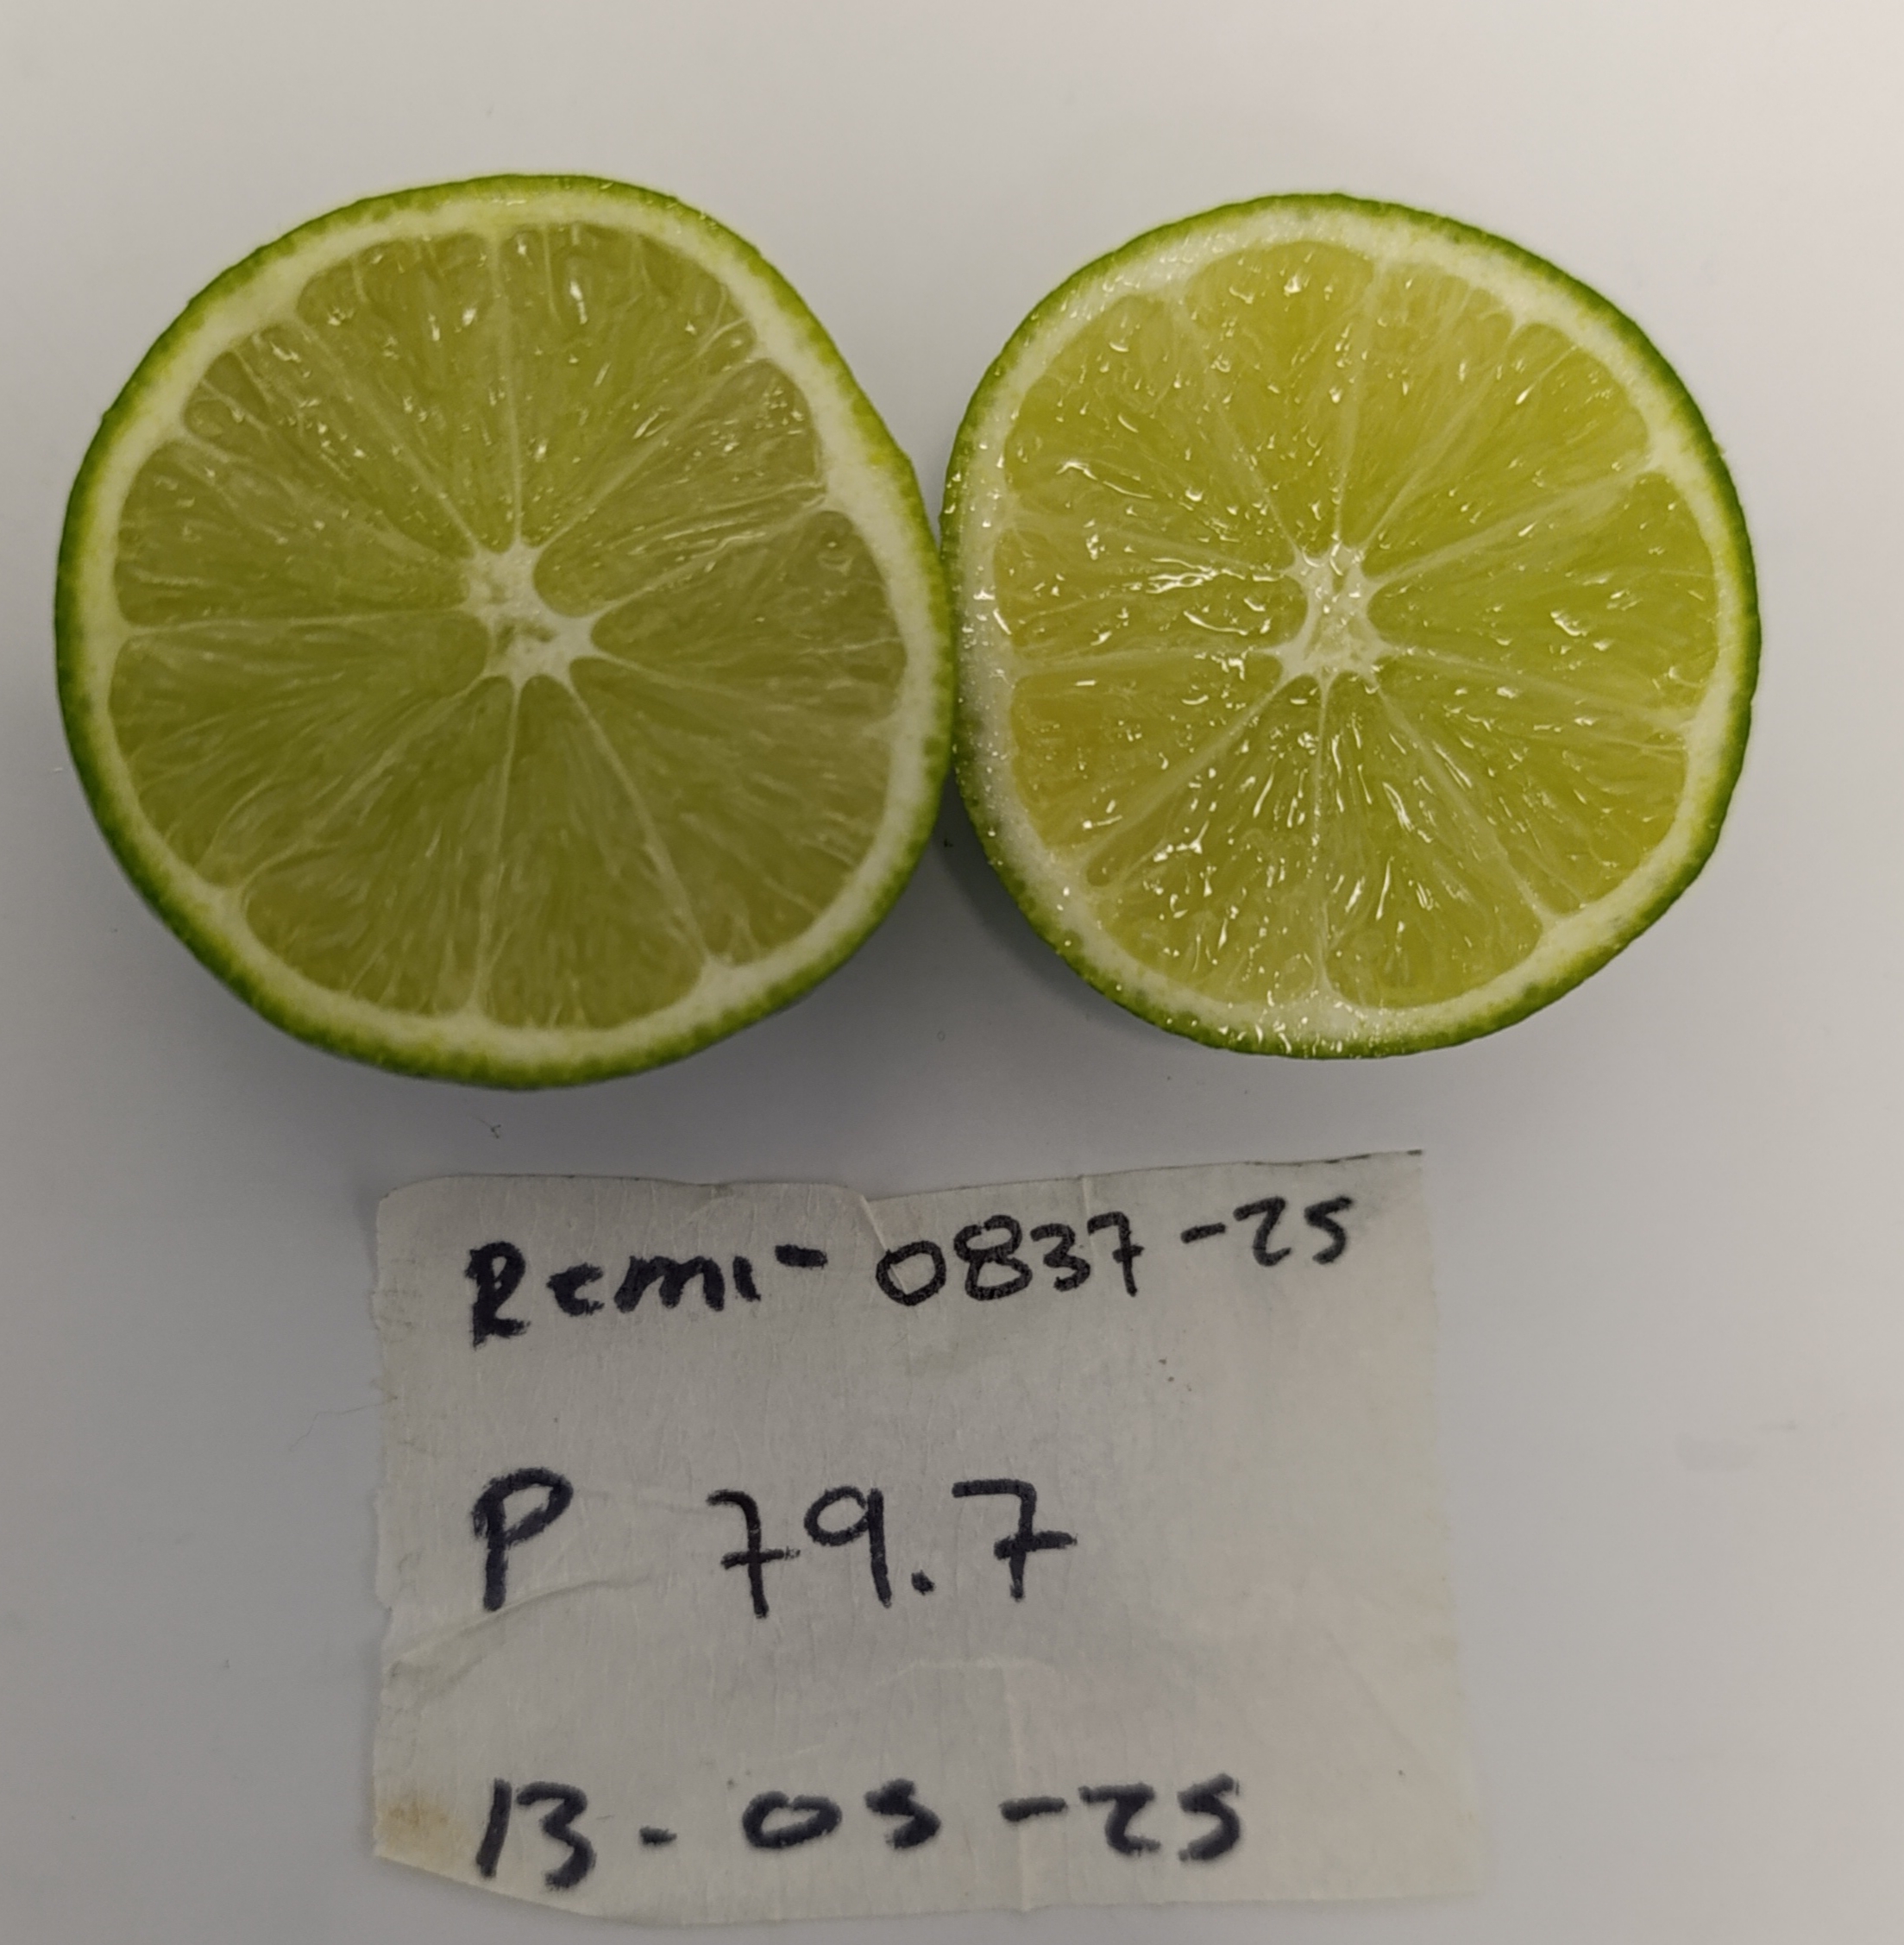 Remi- 0837-25
P 79.7
13-05-25